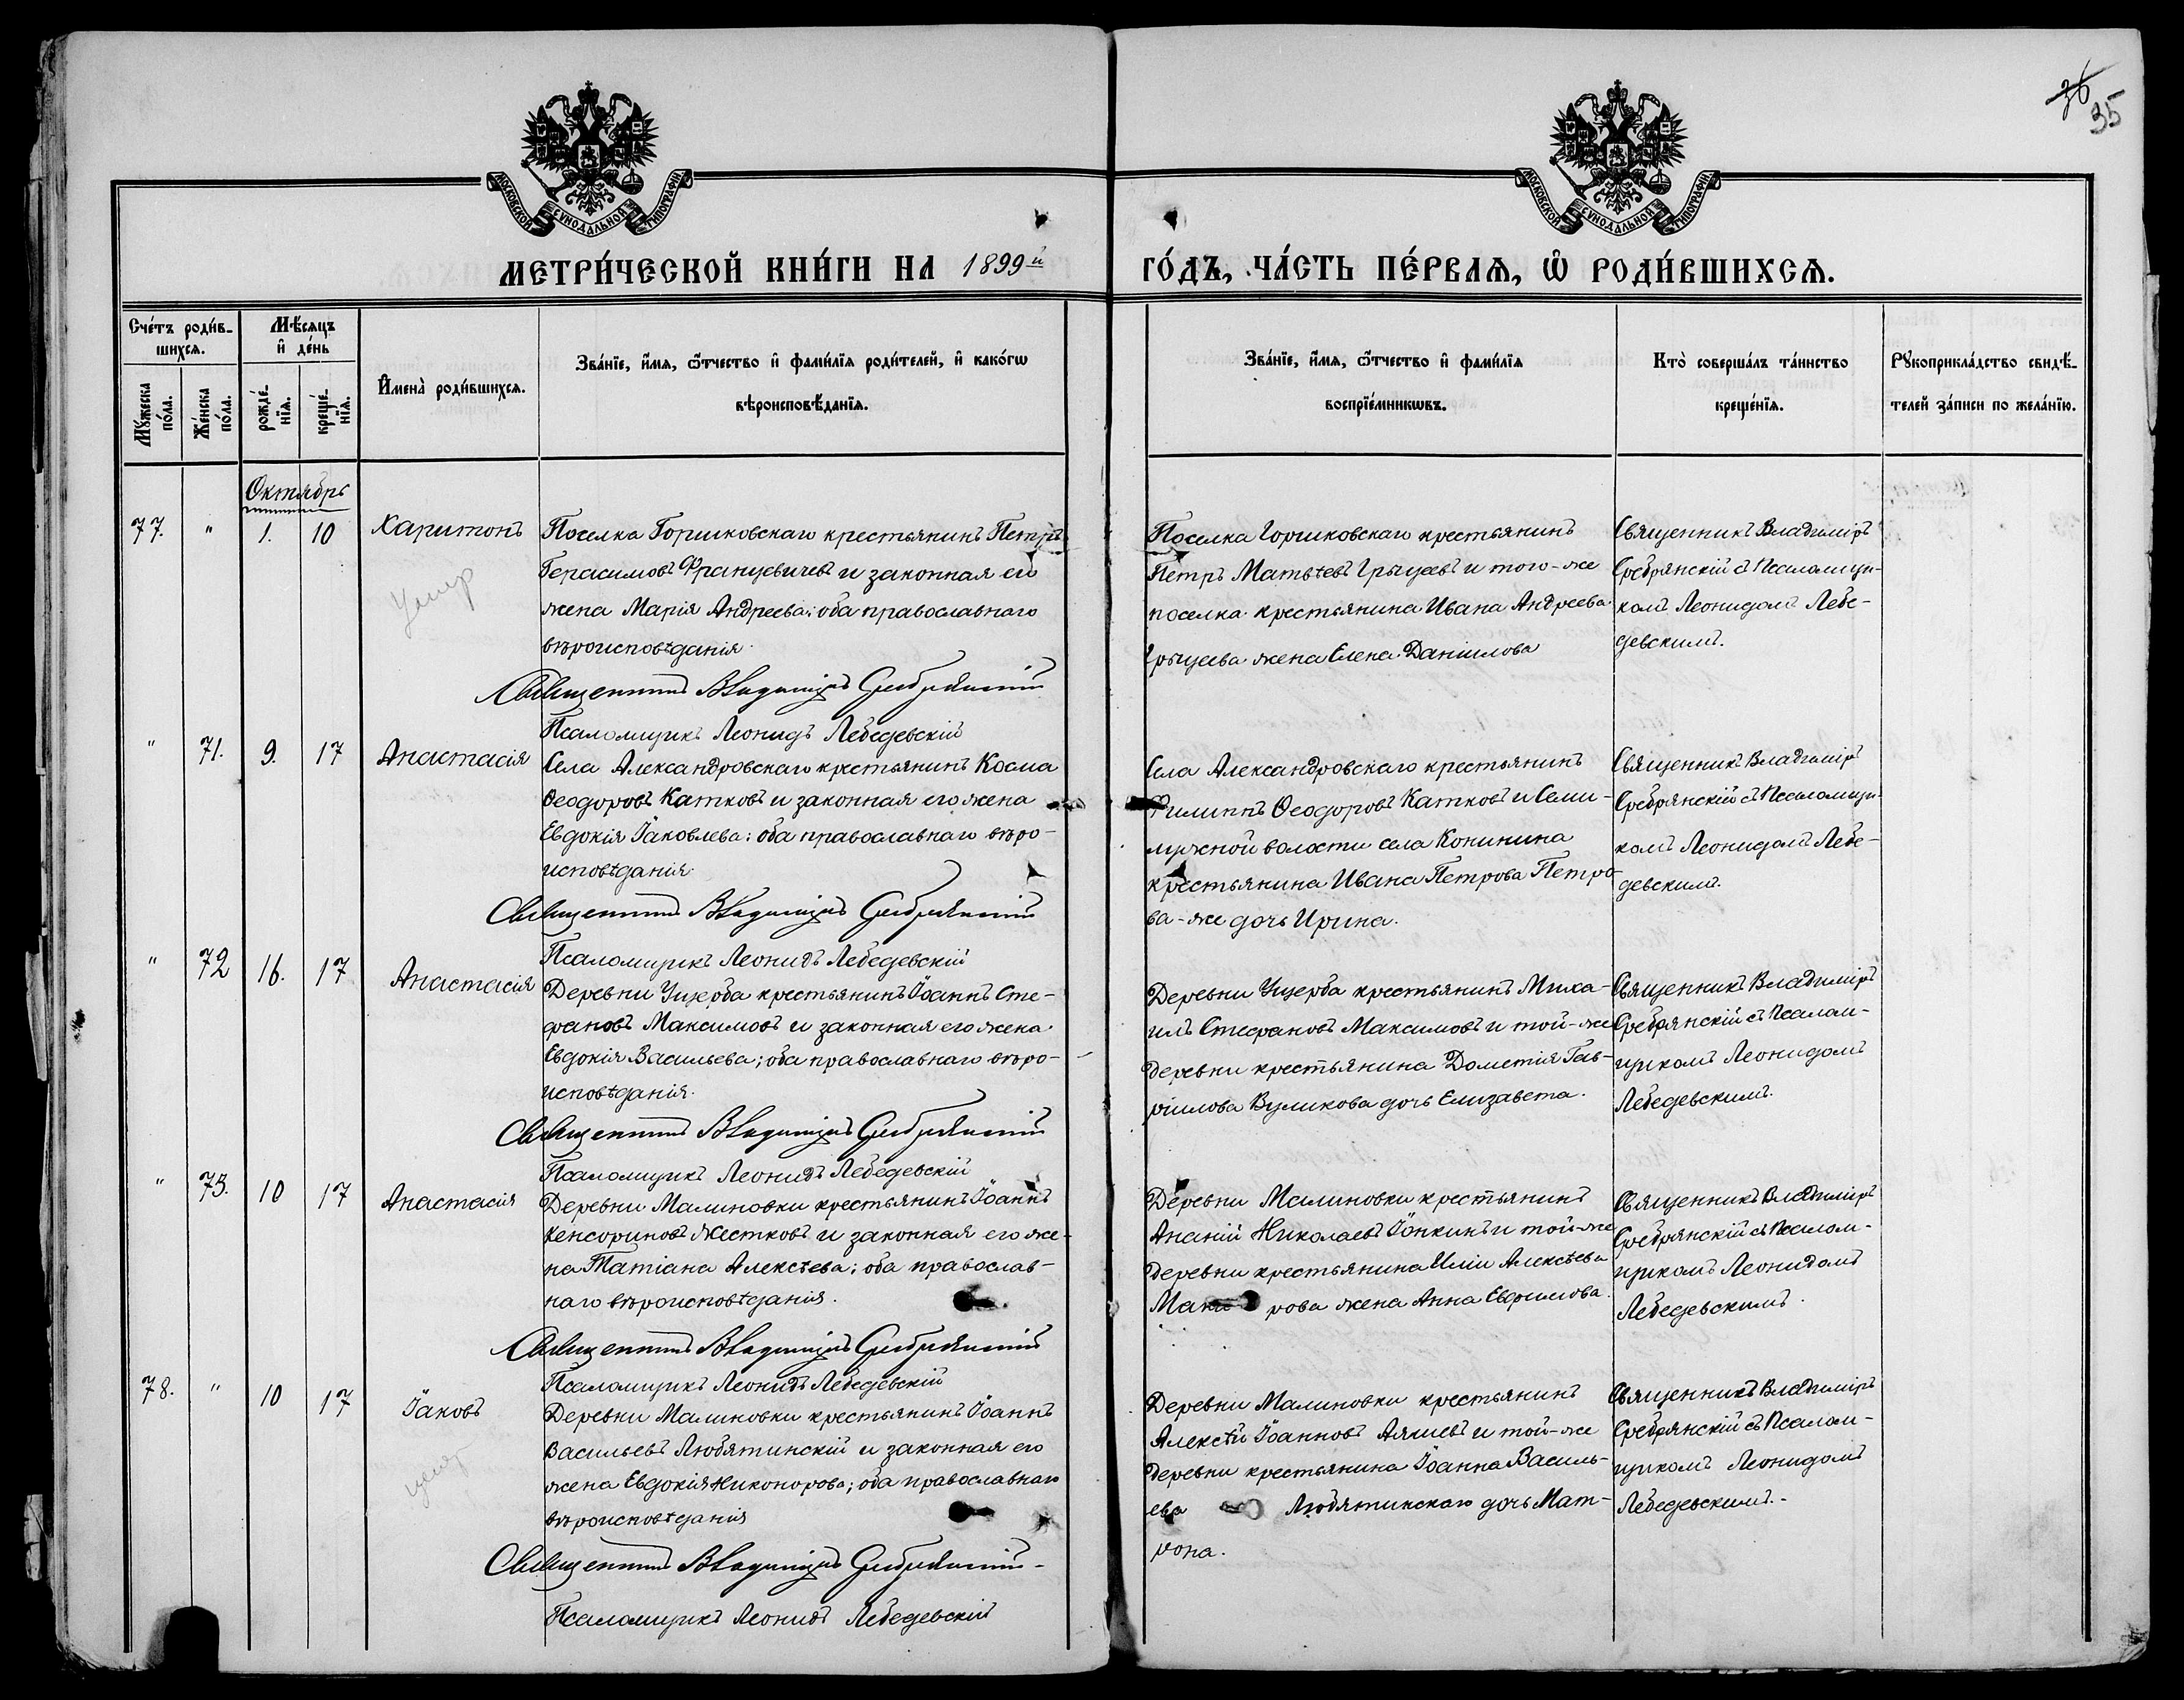 36
35
МОСКОВСКОЙ СУНОДАЛЬНОЙ ТИПОГРАФІИ
МОСКОВСКОЙ СУНОДАЛЬНОЙ ТИПОГРАФІИ
МЕТРИ́ЧЕСКОЙ КНИ́ГИ НА 1899й ГО́ДЪ, ЧА́СТЬ ПЕ́РВАѦ, Ѡ҆ РОДИ́ВШИХСѦ.
Сче́тъ роди́в-
шихсѧ.
Мꙋ́жеска
по́ла.
Же́нска
по́ла.
Мѣ́сѧцъ
и҆ де́нь
рожде́-
нїѧ.
креще́-
нїѧ.
И҆мена̀ роди́вшихсѧ.
Зва́нїе, и҆́мѧ, ѻ҆́тчество и҆ фами́лїѧ роди́телей, и҆ како́гѡ
вѣроисповѣ́данїѧ.
Зва́нїе, и҆́мѧ, ѻ҆́тчество и҆ фами́лїѧ
воспрїе́мникѡвъ.
Кто̀ соверша́лъ та́инство
креще́нїѧ.
Рꙋкоприкла́дство свидѣ́-
телей за́писи по жела́нїю.
Октябрь
77. " 1. 10 Харитонъ
Умер
Поселка Горшковскаго крестьянинъ Петръ
Герасимовъ Францевичевъ и законная его
жена Марія Андреева; оба православнаго
вѣроисповѣданія.
Священникъ Владиміръ Сребрянскій
Псаломщикъ Леонидъ Лебедевскій
Поселка Горшковскаго крестьянинъ
Петръ Матвѣевъ и того-же
поселка крестьянина Ивана Андреева
жена Елена Даніилова
Священникъ Владиміръ
Сребрянскій съ Псаломщи-
комъ Леонидомъ Лебе-
девскимъ.
" 71. 9. 17 Анастасія
Села Александровскаго крестьянинъ Косма
Ѳеодоровъ Катковъ и законная его жена
Евдокія Іаковлева; оба православнаго вѣро-
исповѣданія.
Священникъ Владиміръ Сребрянскій
Псаломщикъ Леонидъ Лебедевскій
Села Александровскаго крестьянинъ
Филиппъ Ѳеодоровъ Катковъ и Семи-
лужной волости села Конинина
крестьянина Ивана Петрова Петро-
ва-же дочь Ирина.
Священникъ Владиміръ
Сребрянскій съ Псаломщи-
комъ Леонидомъ Лебе-
девскимъ.
" 72 16. 17 Анастасія
Деревни Ущерба крестьянинъ Іоаннъ Сте-
фановъ Максимовъ и законная его жена
Евдокія Васильева; оба православнаго вѣро-
исповѣданія.
Священникъ Владиміръ Сребрянскій
Псаломщикъ Леонидъ Лебедевскій
Деревни Ущерба крестьянинъ Миха-
илъ Стефановъ Максимовъ и той-же
деревни крестьянина Дометія Гав-
ріилова Куликова дочь Елизавета.
Священникъ Владиміръ
Сребрянскій съ Псалом-
щикомъ Леонидомъ
Лебедевскимъ.
" 73. 10 17 Анастасія
Деревни Малиновки крестьянинъ Іоаннъ
Кенсориновъ Жестковъ и законная его же-
на Татіана Алексѣева; оба православ-
наго вѣроисповѣданія.
Священникъ Владиміръ Сребрянскій
Псаломщикъ Леонидъ Лебедевскій
Деревни Малиновки крестьянинъ
Ананій Николаевъ Іонкинъ и той-же
деревни крестьянина Иліи Алексѣева
Мака рова жена Анна Евфимова.
Священникъ Владиміръ
Сребрянскій съ Псалом-
щикомъ Леонидомъ
Лебедевскимъ.
78. " 10 17 Іаковъ
умер
Деревни Малиновки крестьянинъ Іоаннъ
Васильевъ Любятинскій и законная его
жена Евдокія Никонорова; оба православнаго
вѣроисповѣданія
Священникъ Владиміръ Сребрянскій
Псаломщикъ Леонидъ Лебедевскій
Деревни Малиновки крестьянинъ
Алексѣй Іоанновъ Алкиевъ и той-же
деревни крестьянина Іоанна Василь-
ева Любятинскаго дочь Мат-
рона.
Священникъ Владиміръ
Сребрянскій съ Псалом-
щикомъ Леонидомъ
Лебедевскимъ.